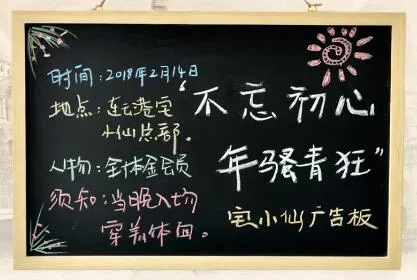 时间：2018年2月14日
地点：连云港宅
小仙总部。
人物：全体金会员
须知：当晚入场
穿着体面。
“不忘初心
年骚青狂”
宅小仙广告板